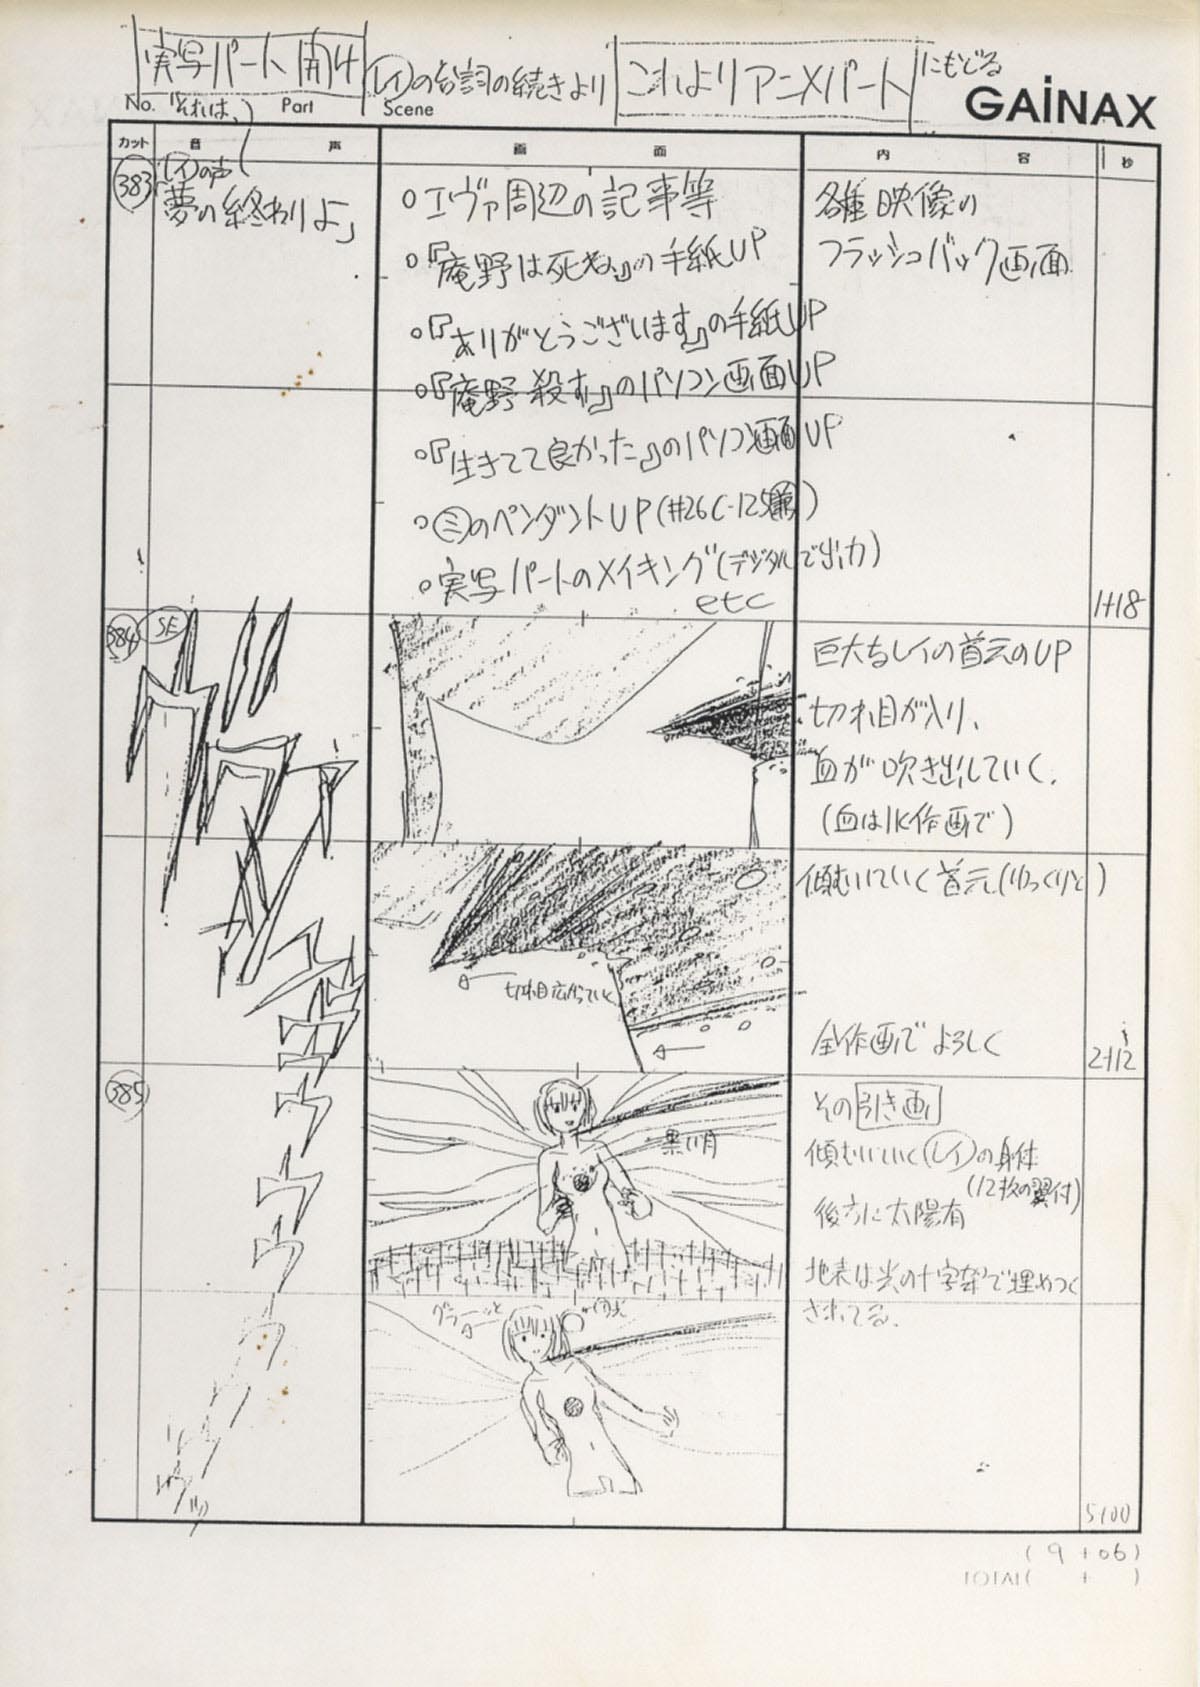 実写パート開け
レイの台詞の続きより
これよりアニメパート
にもどる
GAINAX
No. Part Scene
「それは、
カット 音 声 画 面 内 容 秒
383
レイの声
「夢の終わりよ」
○エヴァ周辺の記事等
○『庵野は死ね』の手紙UP
○『ありがとうございます』の手紙UP
○『庵野殺す』のパソコン画面UP
○『生きてて良かった』のパソコン画面UP
○ミのペンダントUP(#26C-125兼)
○実写パートのメイキング(デジタルで出力)
etc
各種映像の
フラッシュバック画面
1+18
384
SE
巨大なレイの首元のUP
切れ目が入り、
血が吹き出していく。
(血は1K作画で)
切れ目広がっていく
傾むいていく首元。(ゆっくりと)
全作画でよろしく
2+12
385
黒い月
その引き画
傾むいていくレイの身体
(12枚の翼付)
後方に太陽有
地表は光の十字架で埋めつく
されてる。
グラーッと
5+00
(9+06)
TOTAL( + )